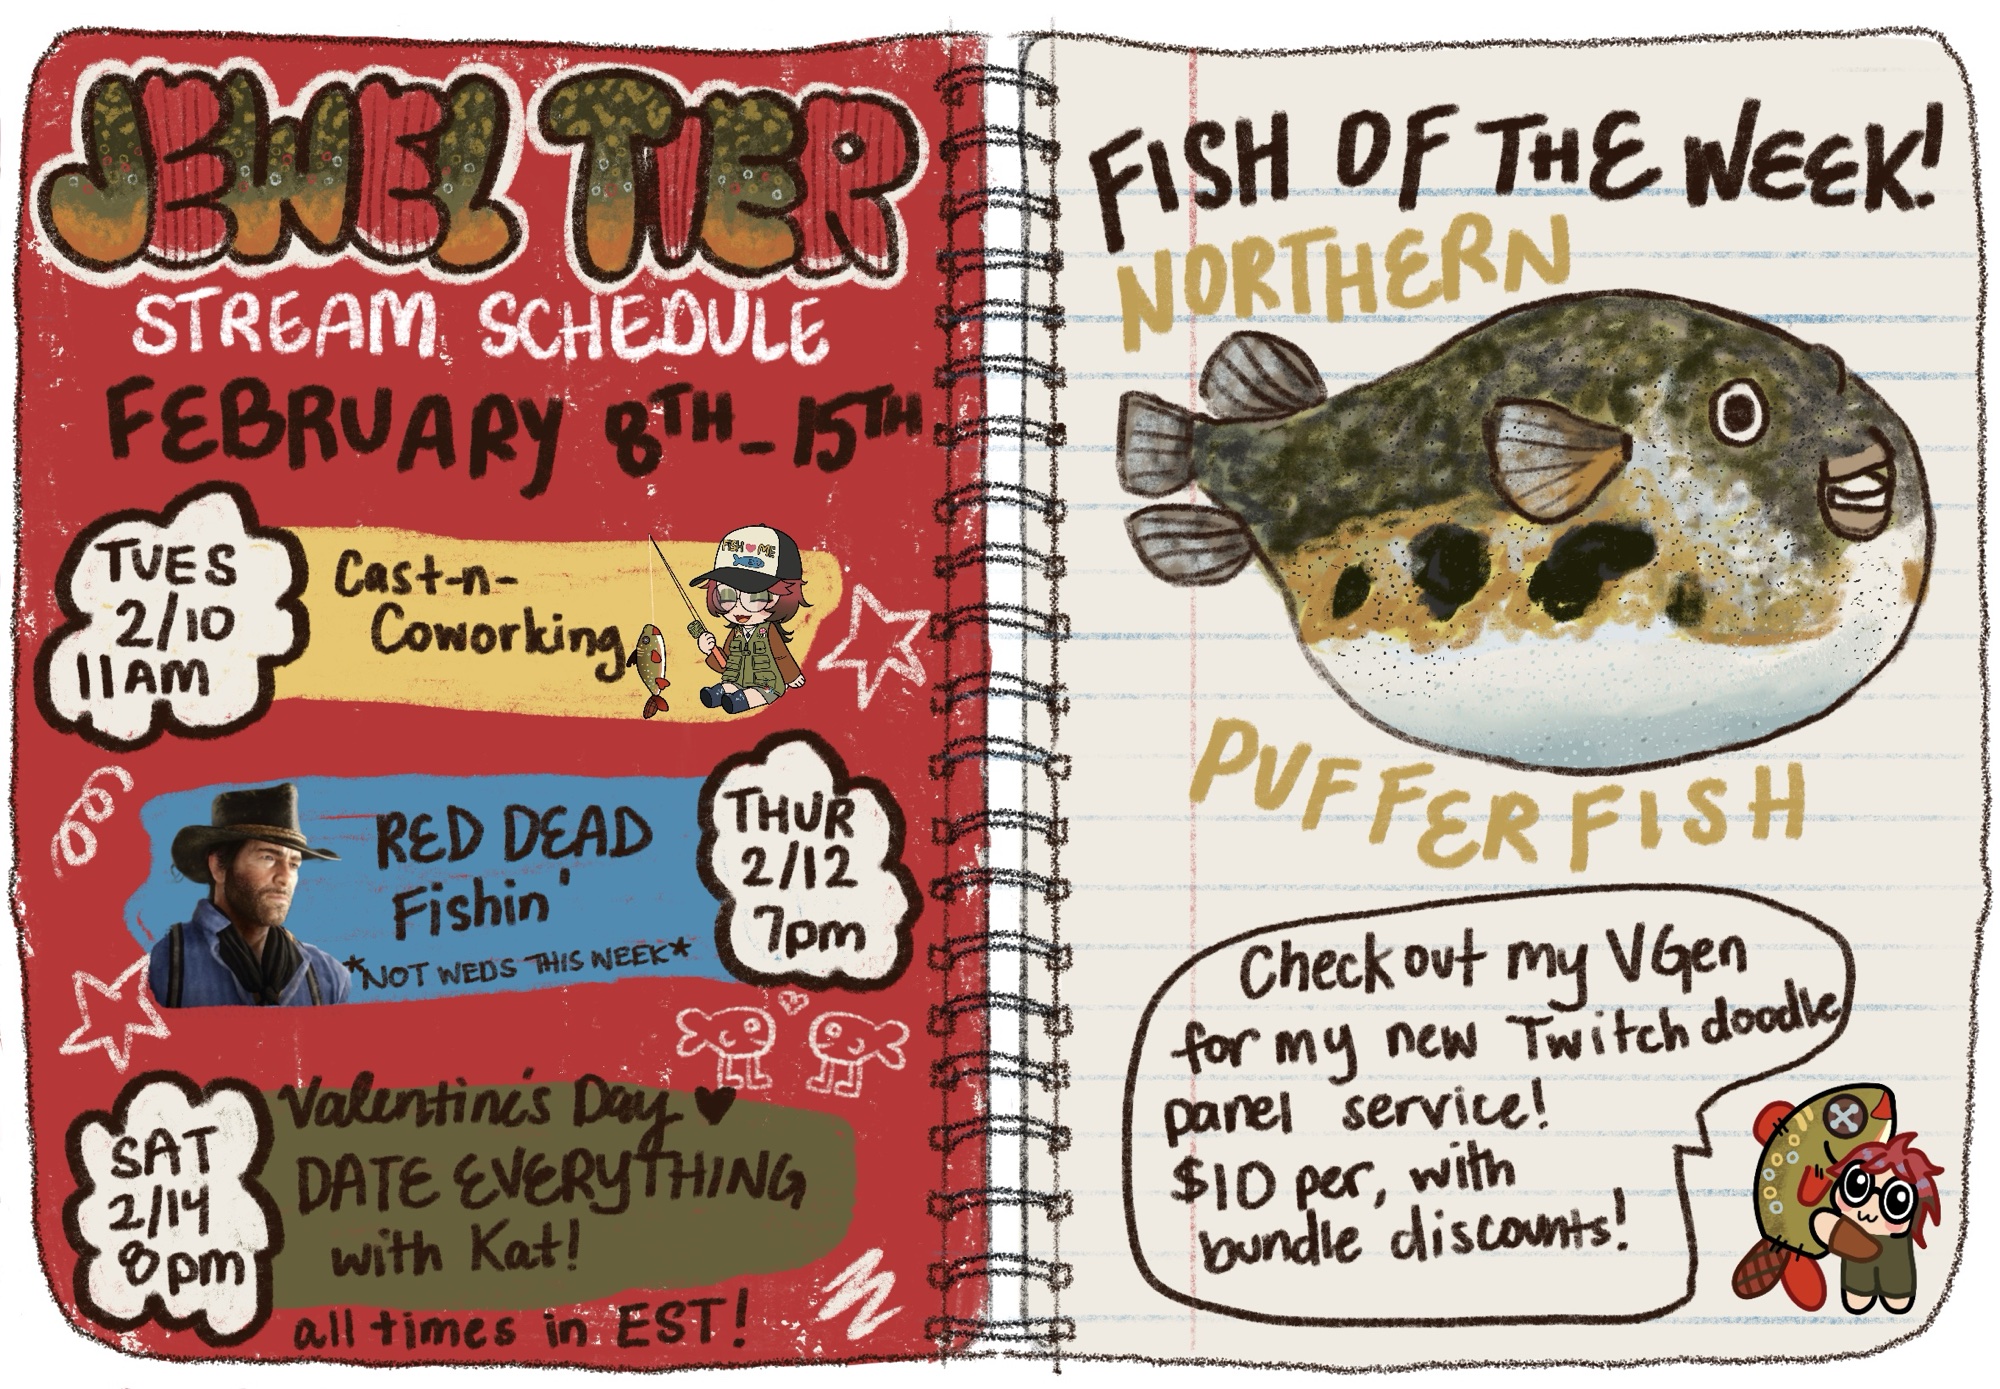 JEWEL TIER
STREAM SCHEDULE
FEBRUARY 8TH-15TH
TUES
2/10
11AM
Cast-n-
Coworking
FISH ♥ ME
RED DEAD
Fishin'
*NOT WEDS THIS WEEK*
THUR
2/12
7pm
SAT
2/14
8pm
Valentine's Day ♥
DATE EVERYTHING
with Kat!
all times in EST!
FISH OF THE WEEK!
NORTHERN
PUFFERFISH
Check out my VGen
for my new Twitch doodle
panel service!
$10 per, with
bundle discounts!